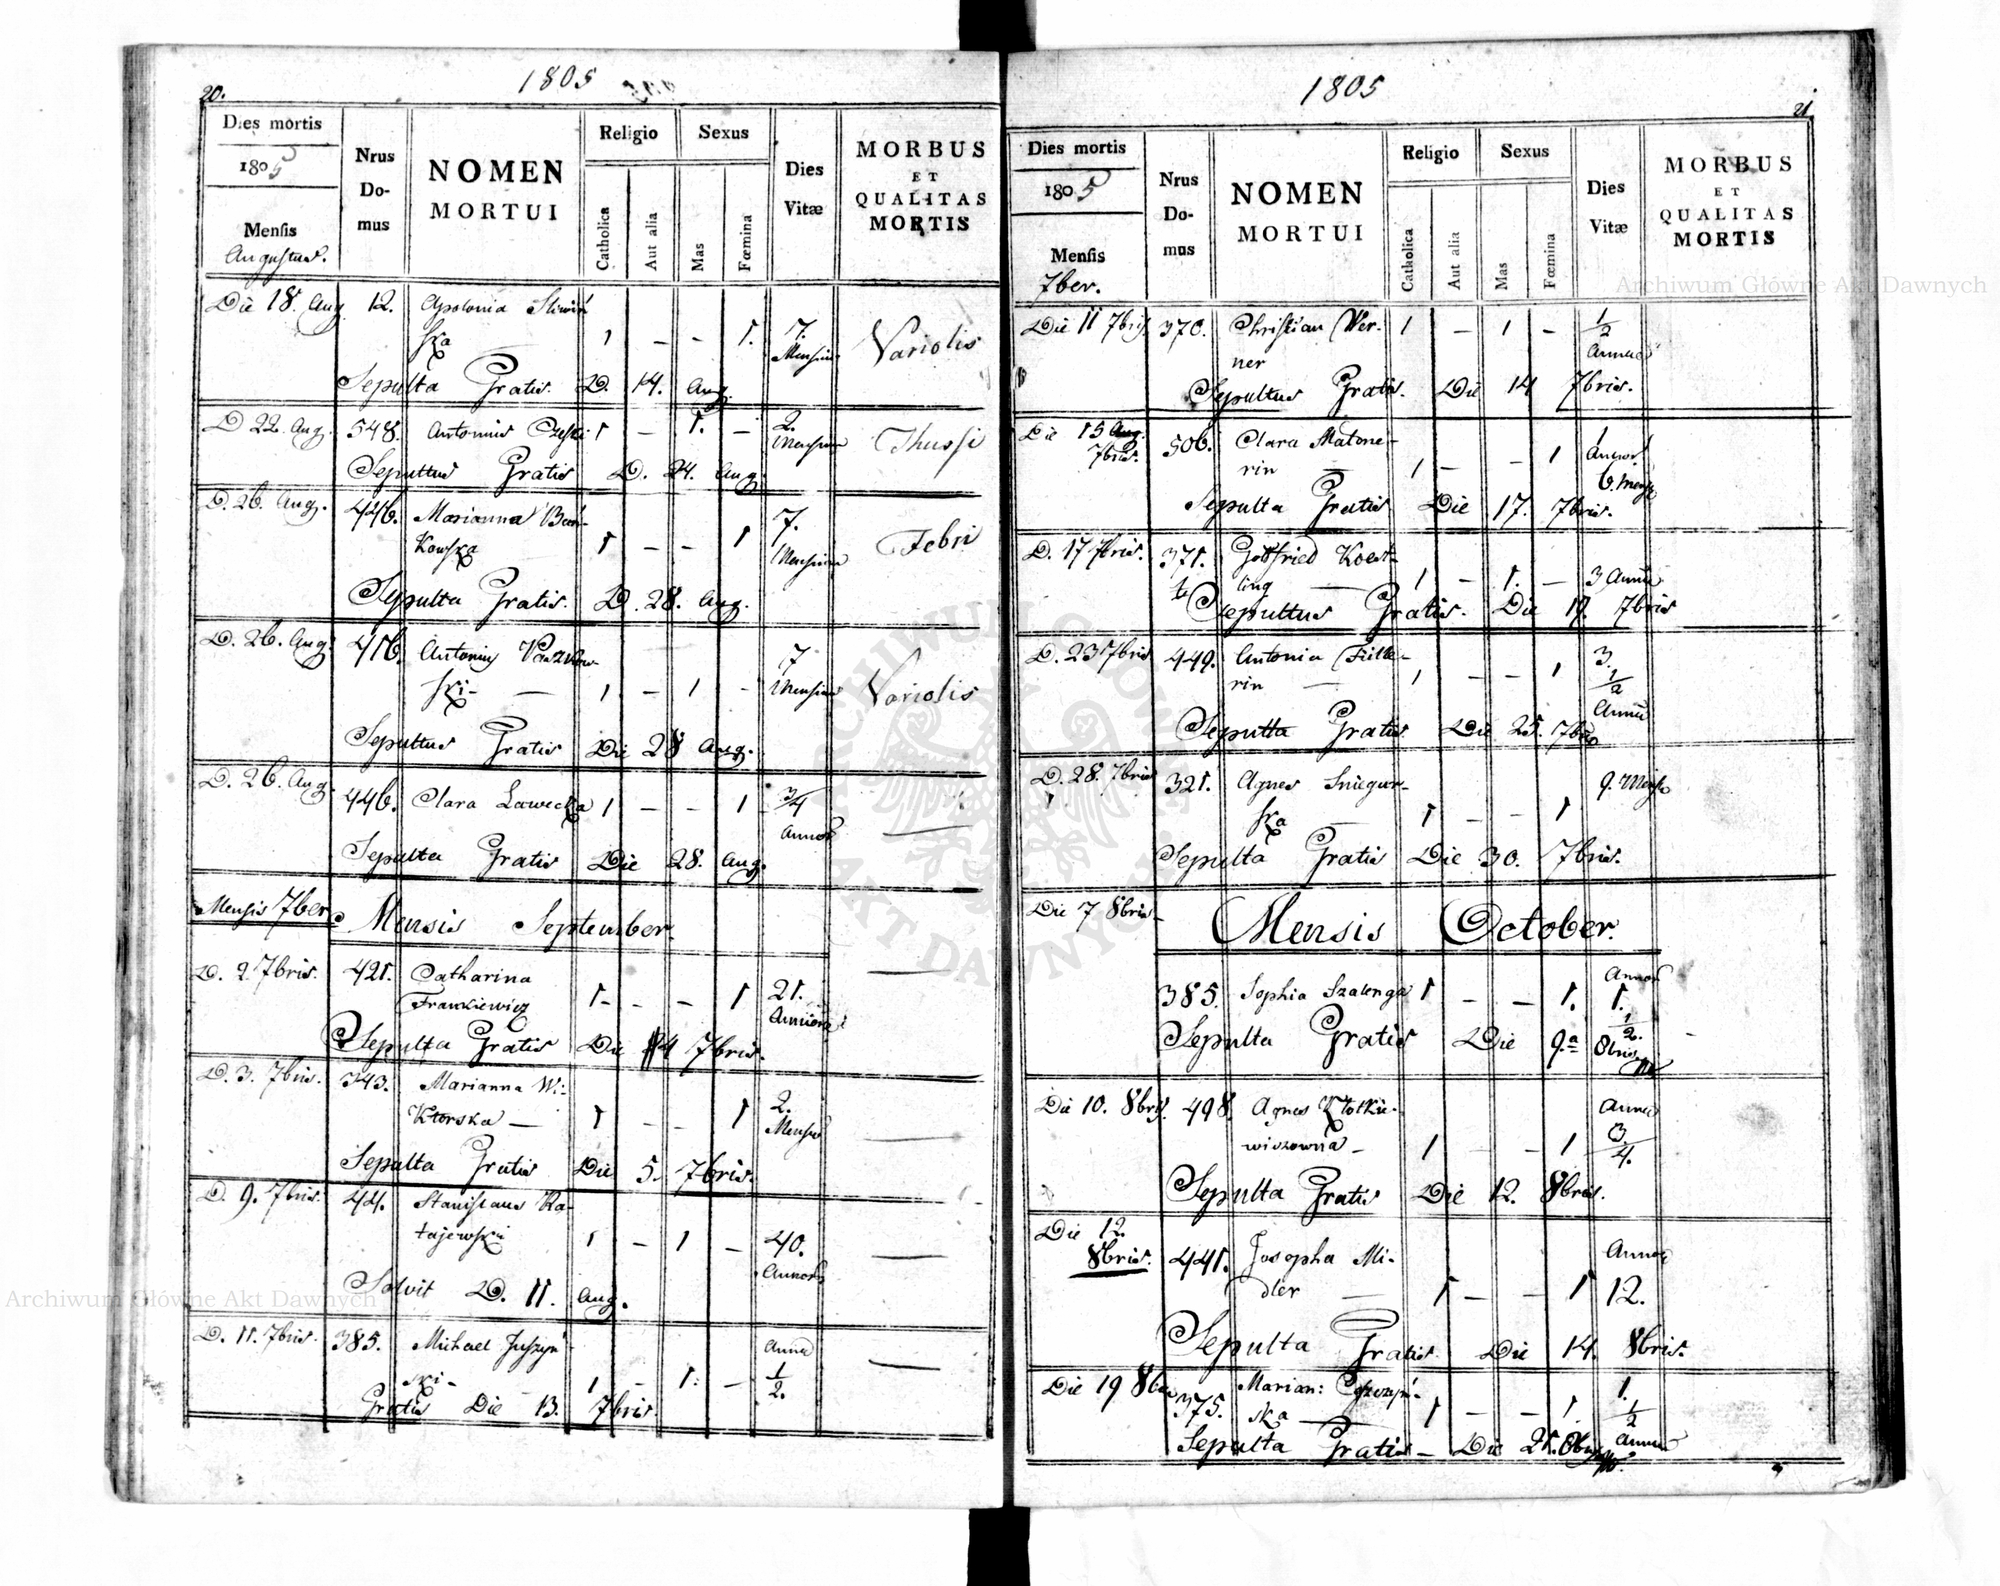 20.
1805
Dies mortis
1805
Mensis
Augustus.
Nrus Do- mus
NOMEN
MORTUI
Religio
Catholica
Aut alia
Sexus
Mas
Fœmina
Dies
Vitæ
MORBUS
ET
QUALITAS
MORTIS
Die 18. Aug. 12. Apolonia Sliwiń
ska 1 — - 1. 7. Mensium Variolis
Sepulta Gratis D. 14. Aug.
D 22. Aug. 548. Antonius 1 — 1. — 2. Mensium Thussi
Sepultus Gratis D. 24. Aug.
D. 26. Aug. 446. Marianna
kowska 1 — — 1 7. Mensium Febri
Sepulta Gratis. D. 28. Aug.
D. 26. Aug. 416. Antonius
ski - — 1 — 1 - 7 Mensium Variolis
Sepultus Gratis Die 28 Aug.
D. 26. Aug. 446. Clara Lawecka 1 — — 1 3/4 Annor —
Sepulta Gratis Die 28. Aug.
Mensis 7ber Mensis September.
D. 2 7bris. 421. Catharina
Frankiewicz 1 - — 1 21. Annorum —
Sepulta Gratis Die 4 7bris.
D. 3. 7bris. 343. Marianna Wi-
ktorska — 1 - - 1 2. Mensium —
Sepulta Gratis Die 5. 7bris.
D. 9. 7bris. 44. Stanislaus Ra-
tajewski 1 — 1 — 40. Annor —
Solvit D. 11. Aug.
D. 11. 7bris. 385. Michael Juszyń
ski - 1 - 1. — Anni 1/2. —
Gratis Die 13. 7bris.
1805
21.
Dies mortis
1805
Mensis
7ber.
Nrus Do- mus
NOMEN
MORTUI
Religio
Catholica
Aut alia
Sexus
Mas
Fœmina
Dies
Vitæ
MORBUS
ET
QUALITAS
MORTIS
Die 11 7bris 370. Christian Wer- 1 — 1 — 1/2
ner
Sepultus Gratis. Die 14 7bris.
Die 15 Aug. 7bris. 506. Clara Matone-
rin — 1 — - 1 1 6. Mens
Sepulta Gratis Die 17. 7bris.
D. 17 7bris. 371. Gottfried Koest-
ling — 1 - 1. — 3
Sepultus Gratis. Die 19. 7bris
D. 23 7bris 449. Antonia
rin — 1 — - 1 3. 1/2
Sepulta Gratis Die 25. 7bris
D. 28. 7bris 321. Agnes Sniegur-
ska — 1 — - 1 9. Mens
Sepulta Gratis Die 30. 7bris.
Die 7 8bris - Mensis October.
385. Sophia Szalenga 1 - — 1. Annor 1. 1/2.
Sepulta Gratis Die 9.a 8bris
Die 10. 8bris. 498. Agnes Klotkie-
wiczowna - 1 — - 1 3/4.
Sepulta Gratis Die 12. 8bris.
Die 12. 8bris. 441. Josepha Mi-
dler — 1 — - 1 12.
Sepulta Gratis Die 14. 8bris.
Die 19 8bris 375. Marian:
ska — 1 — — 1. 1. 1/2
Sepulta Gratis - Die 21. 8bris
Archiwum Główne Akt Dawnych
Archiwum Główne Akt Dawnych
ARCHIWUM GŁÓWNE AKT DAWNYCH